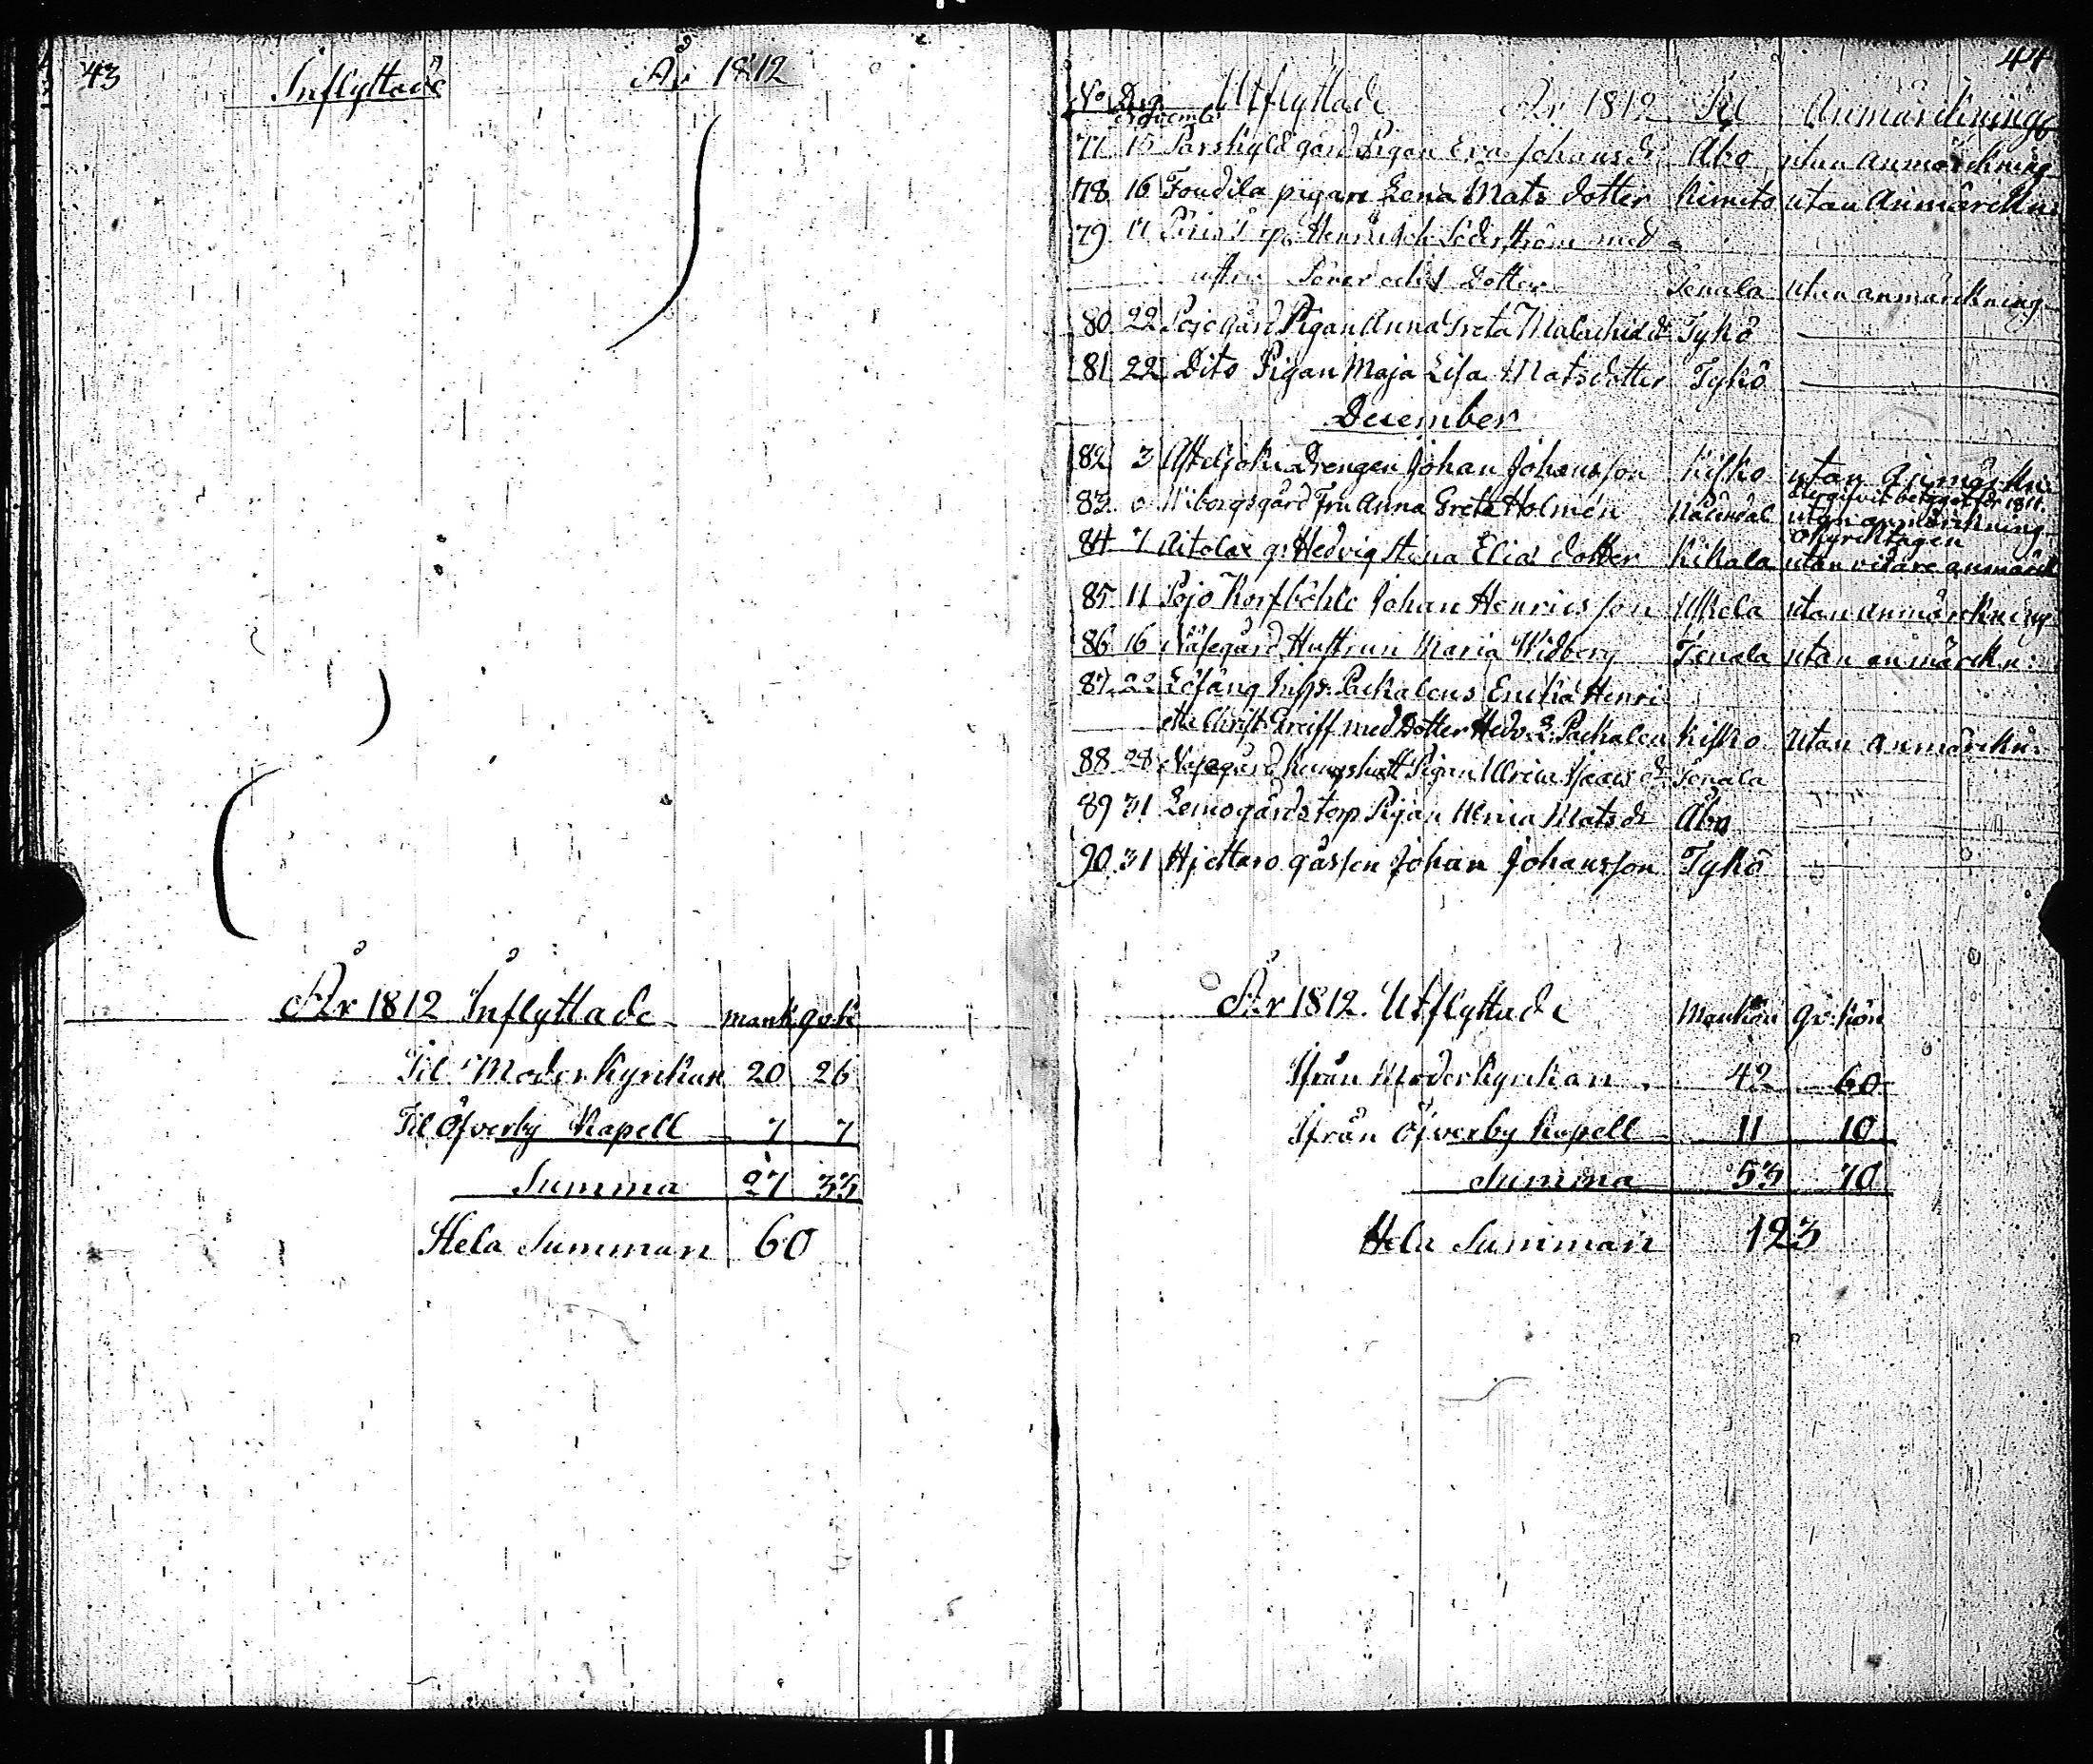 43
Inflyttade År 1812
År 1812 Inflyttade mank qvk
Til Moderkyrkan 20 26
Til Öfverby Kapell 7 7
Summa 27 33
Hela Summan 60
44
No Dag Utflyttade År 1812 Til Anmärckningg
November
77 15 Parskyld gård Pigan Eva Johans dr Åbo utan anmärckning
78 16 pigan Lena Mats dotter Kimito utan Anmärckni
79 17 Henrich Söderström med
Söner och 1 Dotter Tenala utan anmärckning
80 22 Pojo gård Pigan Anna Greta Malachias dr Tykö
81 22 Dito Pigan Maja Lisa Matsdotter Tykö
December
82 3 drengen Johan Johansson Kisko utan anmärkn:
83 Wiborgsgård Fru Anna Greta Holmén Nådendal utan anmärckning
84 7 Hedvig Stina Elias dotter Kikala okyrktagen
utan vidare anmärck
85 11 Pojo Johan Henricsson Uskela utan anmärckning
86 16 Näsegård Hustrun Maria Widberg Tenala utan anmärckn:
87 22 Pachalens Enckia Henri
etta Christ: Greiff med Dotter Hedv: L: Pachalen Kisko utan anmärckn:
88 28 Näsegård Pigan Ulrica Isaacs dr Tenala
89 31 Lemogårds torp Pigan Maria Mats dr Åbo
90 31 gåssen Johan Johansson Tykö
År 1812. Utflyttade Mankön Qv:kön
Ifrån Moderkyrkan 42 60
Ifrån Öfverby Kapell 11 10
Summa 53 70
Hela Summan 123